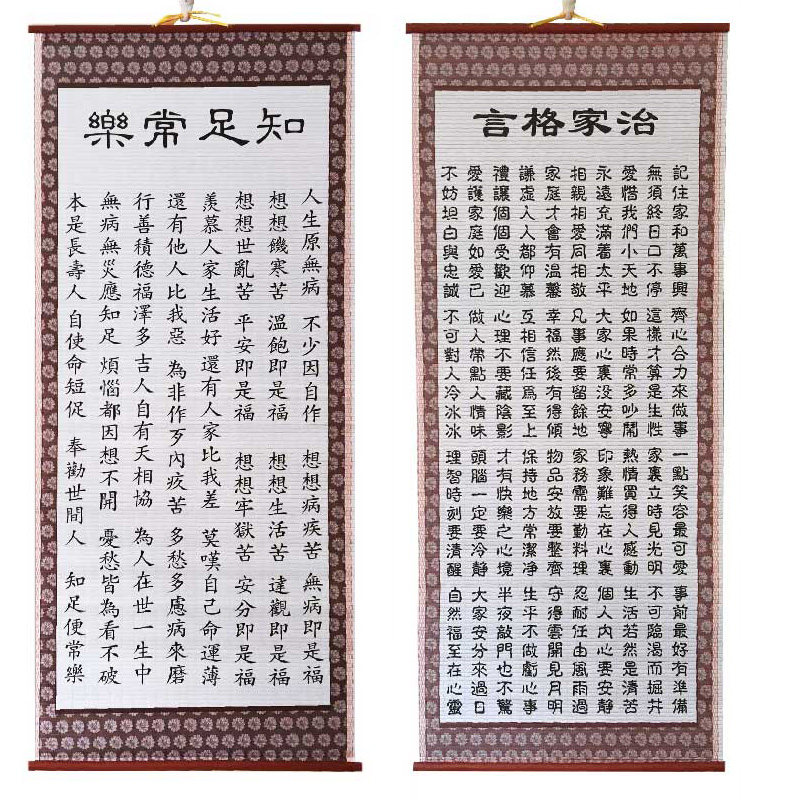 知足常樂
人生原無病 不少因自作 想想病疾苦 無病即是福
想想饑寒苦 溫飽即是福 想想生活苦 達觀即是福
想想世亂苦 平安即是福 想想牢獄苦 安分即是福
羨慕人家生活好 還有人家比我差 莫嘆自己命運薄
還有他人比我惡 為非作歹內疚苦 多愁多慮病來磨
行善積德福澤多 吉人自有天相協 為人在世一生中
無病無災應知足 煩惱都因想不開 憂愁皆為看不破
本是長壽人 自使命短促 奉勸世間人 知足便常樂
治家格言
記住家和萬事興 齊心合力來做事 一點笑容最可愛 事前最好有準備
無須終日口不停 這樣才算是生性 家裏立時見光明 不可臨渴而掘井
愛惜我們小天地 如果時常多吵鬧 熱情買得人感動 生活若然是清苦
永遠充滿着太平 大家心裏沒安寧 印象難忘在心裏 個人內心要安靜
相親相愛同相敬 凡事應要留餘地 家務需要勤料理 忍耐任由風雨過
家庭才會有溫馨 幸福然後有得傾 物品安放要整齊 守得雲開見月明
謙虛人人都仰慕 互相信任爲至上 保持地方常潔淨 生平不做虧心事
禮讓個個受歡迎 心理不要藏陰影 才有快樂之心境 半夜敲門也不驚
愛護家庭如愛己 做人帶點人情味 頭腦一定要冷靜 大家安分來過日
不妨坦白與忠誠 不可對人冷冰冰 理智時刻要清醒 自然福至在心靈